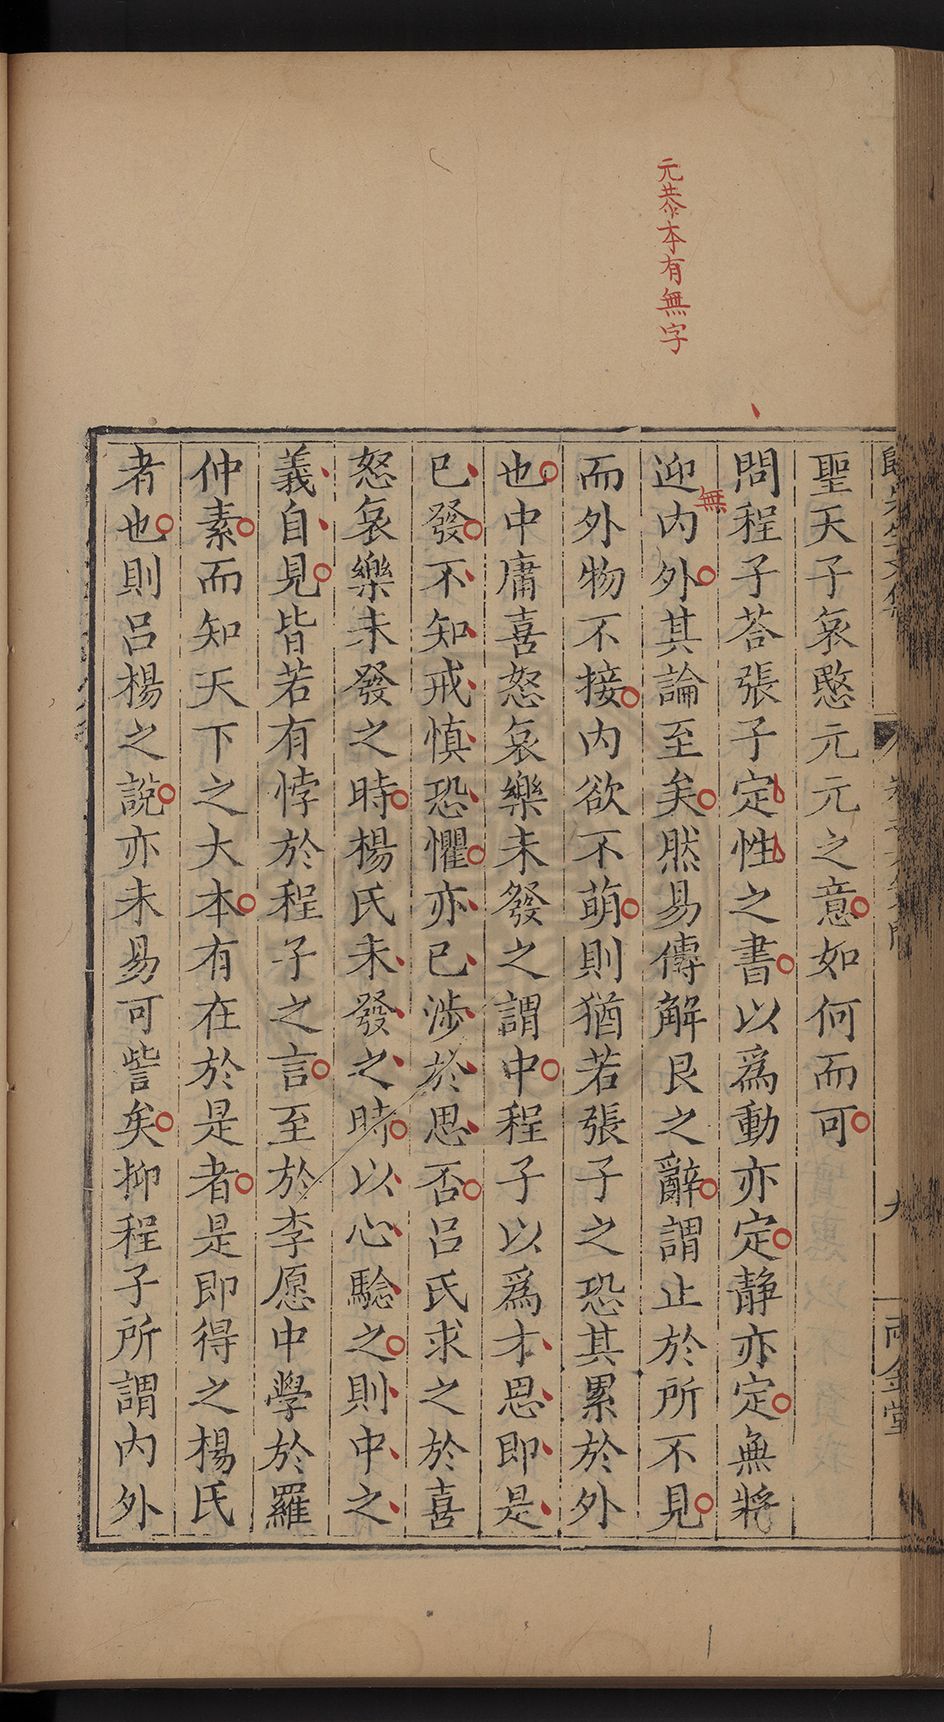 元恭本有無字
聖天子哀愍元元之意如何而可
問程子荅張子定性之書以爲動亦定静亦定無將
迎無內外其論至矣然易傳解艮之辭謂止於所不見
而外物不接內欲不萌則猶若張子之恐其累於外
也中庸喜怒哀樂未發之謂中程子以爲才思即是
已發不知戒慎恐懼亦已涉於思否呂氏求之於喜
怒哀樂未發之時楊氏未發之時以心驗之則中之
義自見皆若有悖於程子之言至於李愿中學於羅
仲素而知天下之大本有在於是者是即得之楊氏
者也則呂楊之說亦未易可訾矣抑程子所謂內外
九